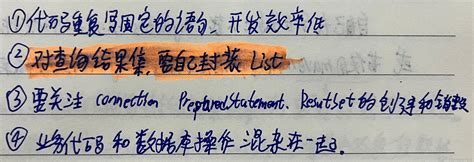 ①代码重复写固定的语句,开发效率低
②对查询结果集,要自己封装 List
③要关注 connection PreparedStatement. ResultSet 的创建和销毁
④业务代码和数据库操作混杂在一起。